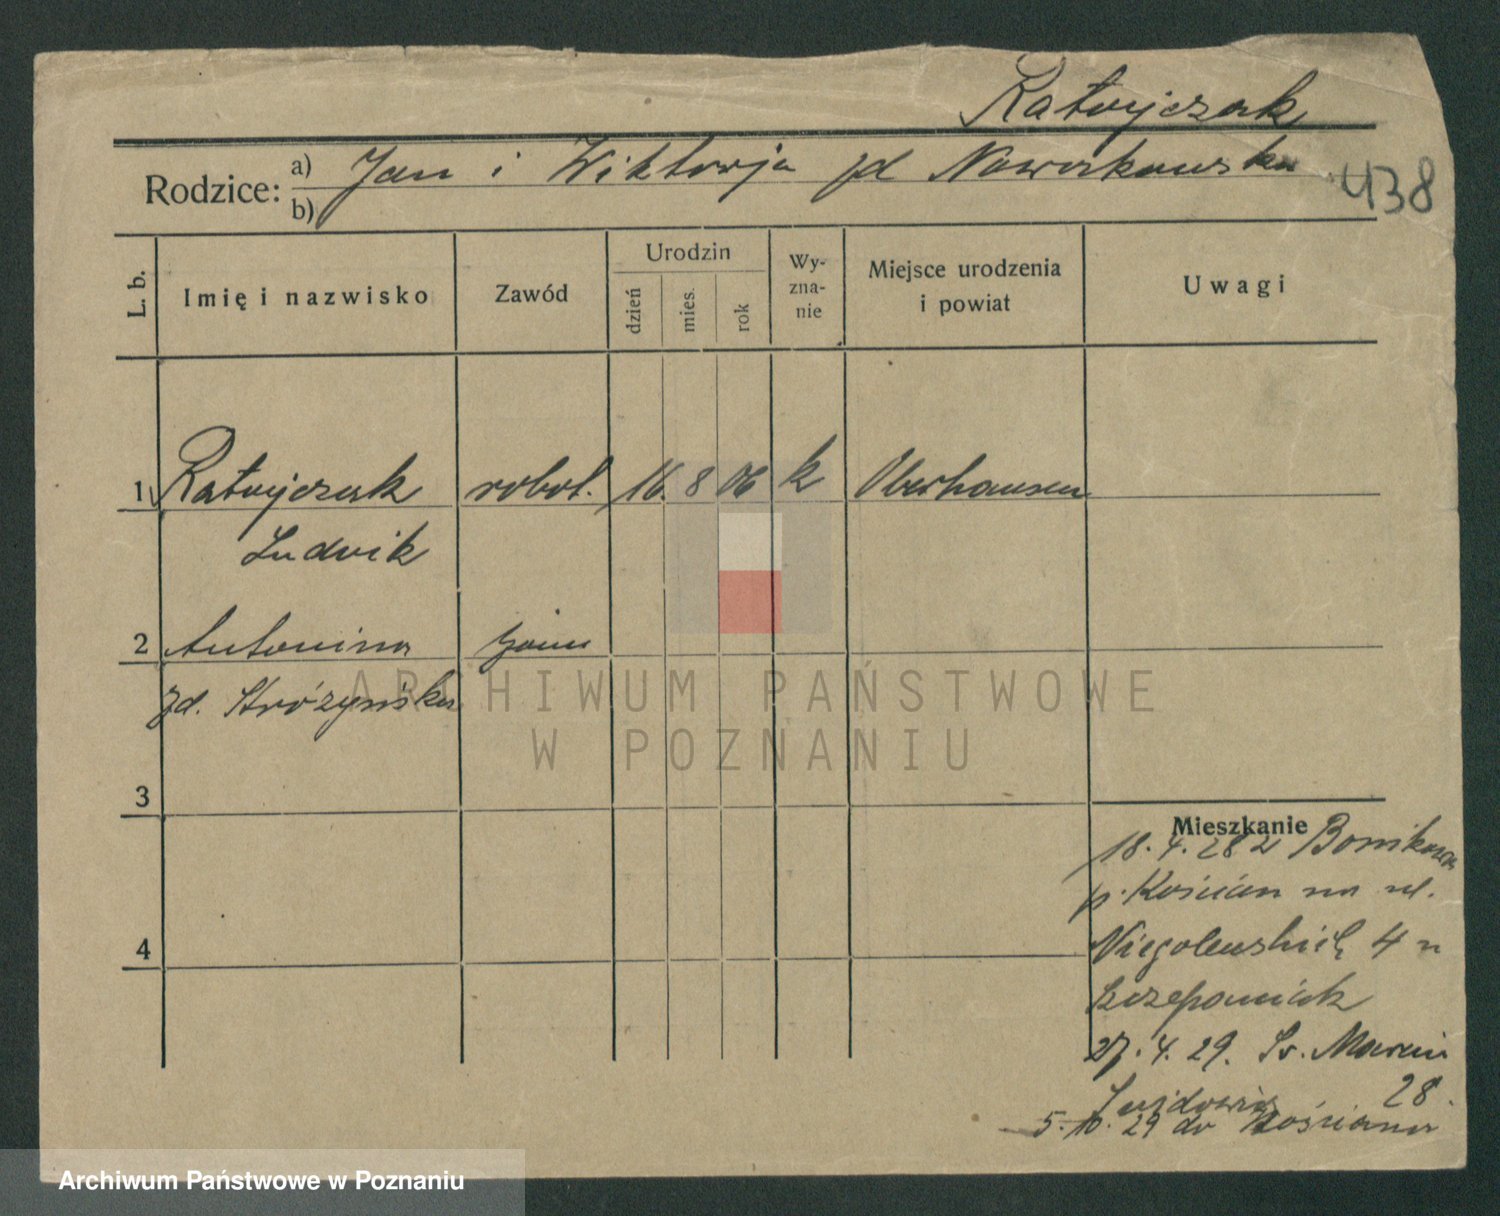 Ratajczak
Rodzice: a) Jan i Wiktorja zd Nowakowska
b)
438
L. b.
Imię i nazwisko
Zawód
Urodzin
dzień
mies.
rok
Wy-
zna-
nie
Miejsce urodzenia
i powiat
Uwagi
1 Ratajczak robot. 16. 8 06 k Oberhausen
Ludwik
2 Antonina żona
zd. Stróżyńska
3
4
Mieszkanie
18.4.28 z Bonikowa
p. Kościan na ul.
Niegolewskich 4 u
Szczepaniak
27.4.29. Św. Marcin
28.
5.10.29 do Kościana
ARCHIWUM PAŃSTWOWE
W POZNANIU
Archiwum Państwowe w Poznaniu